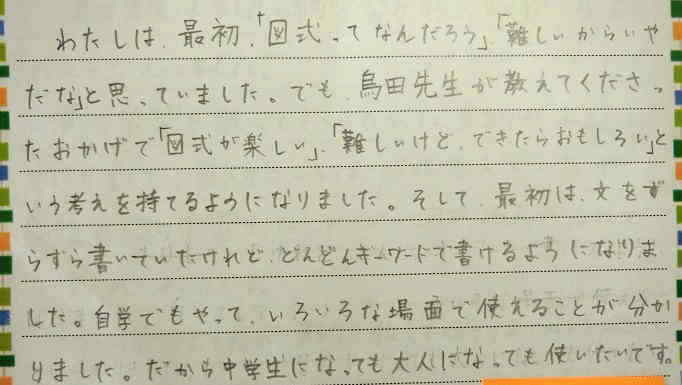 わたしは、最初、「図式ってなんだろう」、「難しいからいや
だな」と思っていました。でも、島田先生が教えてくださっ
たおかげで「図式が楽しい」、「難しいけど、できたらおもしろい」と
いう考えを持てるようになりました。そして、最初は、文をず
らずら書いていたけれど、どんどんキーワードで書けるようになりま
した。自学でもやって、いろいろな場面で使えることが分か
りました。だから中学生になっても大人になっても使いたいです。